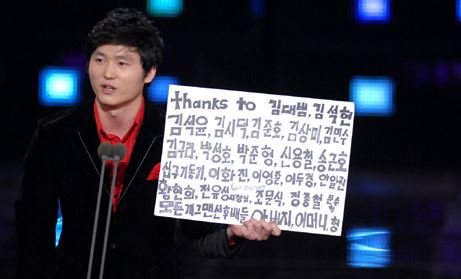 thanks to 김대범, 김석현
김석윤, 김시덕, 김준호, 김상미, 김민수
김규라, 박성호, 박준형, 신용철, 송근호
십구기동기, 이화진, 이영준, 이두경, 안일권
황현희, 전유성, 조문식, 정종철
모든 개그맨선후배들, 아버지, 어머니, 형